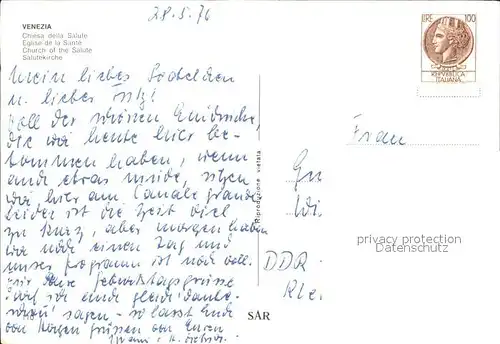 28.5.76
VENEZIA
Chiesa della Salute
Eglise de la Santé
Church of the Salute
Salutekirche
LIRE 100
REPVBBLICA
ITALIANA
Mein liebes
u. lieber
voll der schönen Eindrücke,
die wir heute hier be-
kommen haben, wenn
auch etwas müde, sitzen
wir hier am Canale grande
leider ist die Zeit viel
zu kurz, aber morgen haben
wir noch einen Tag und
unser Programm ist noch voll.
Für Eure Geburtstagsgrüsse
darf ich auch gleich danke-
schön sagen - so lasst Euch
von Herzen grüssen von Euren
Riproduzione vietata
Frau
DDR
SAR
privacy protection
Datenschutz